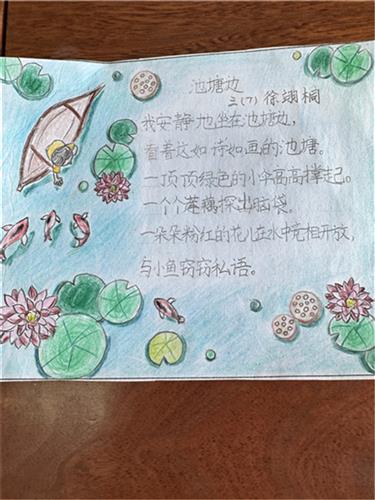 池塘边
三(7) 徐翊桐
我安静地坐在池塘边,
看着这如诗如画的池塘。
一顶顶绿色的小伞高高撑起。
一个个莲藕探出脑袋。
一朵朵粉红的花儿在水中竞相开放,
与小鱼窃窃私语。